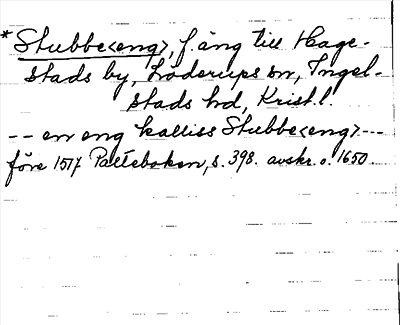 * Stubbe<eng>, f. äng till Hage-
stads by, Löderups sn, Ingel-
stads hd, Krist. l.
-- en eng kalliss Stubbe<eng> ---
före 1517 Palteboken, s. 398. avskr. o. 1650.